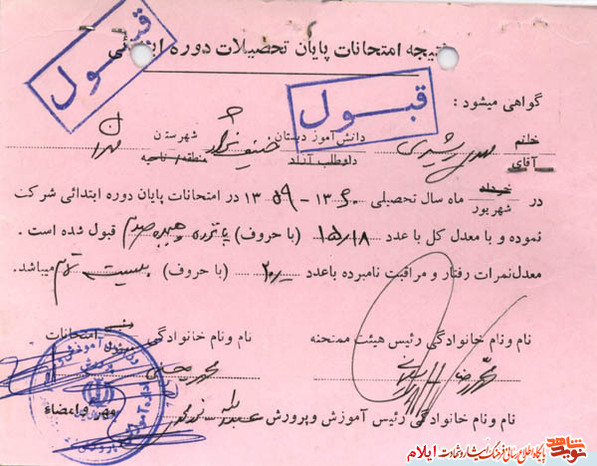 نتیجه امتحانات پایان تحصیلات دوره ابتدائی
قبولی
قبول
گواهی میشود :
خانم
آقای
دانش‌آموز دبستان
داوطلب آزاد
شهرستان
منطقه / ناحیه
مهران
در خرداد
شهریور
ماه سال تحصیلی ۱۳۶۰ - ۱۳۵۹ در امتحانات پایان دوره ابتدائی شرکت
نموده و با معدل کل با عدد ۱۵/۱۸ (با حروف) پانزده و هیجده صدم قبول شده است .
معدل‌نمرات رفتار و مراقبت نامبرده باعدد ۲۰/ (با حروف) بیست تمام میباشد.
نام ونام خانوادگی رئیس هیئت ممتحنه
نام ونام خانوادگی امتحانات
نام ونام خانوادگی رئیس آموزش وپرورش
مهر وامضاء
نوید شاهد
پایگاه اطلاع رسانی فرهنگ ایثار و شهادت ایلام